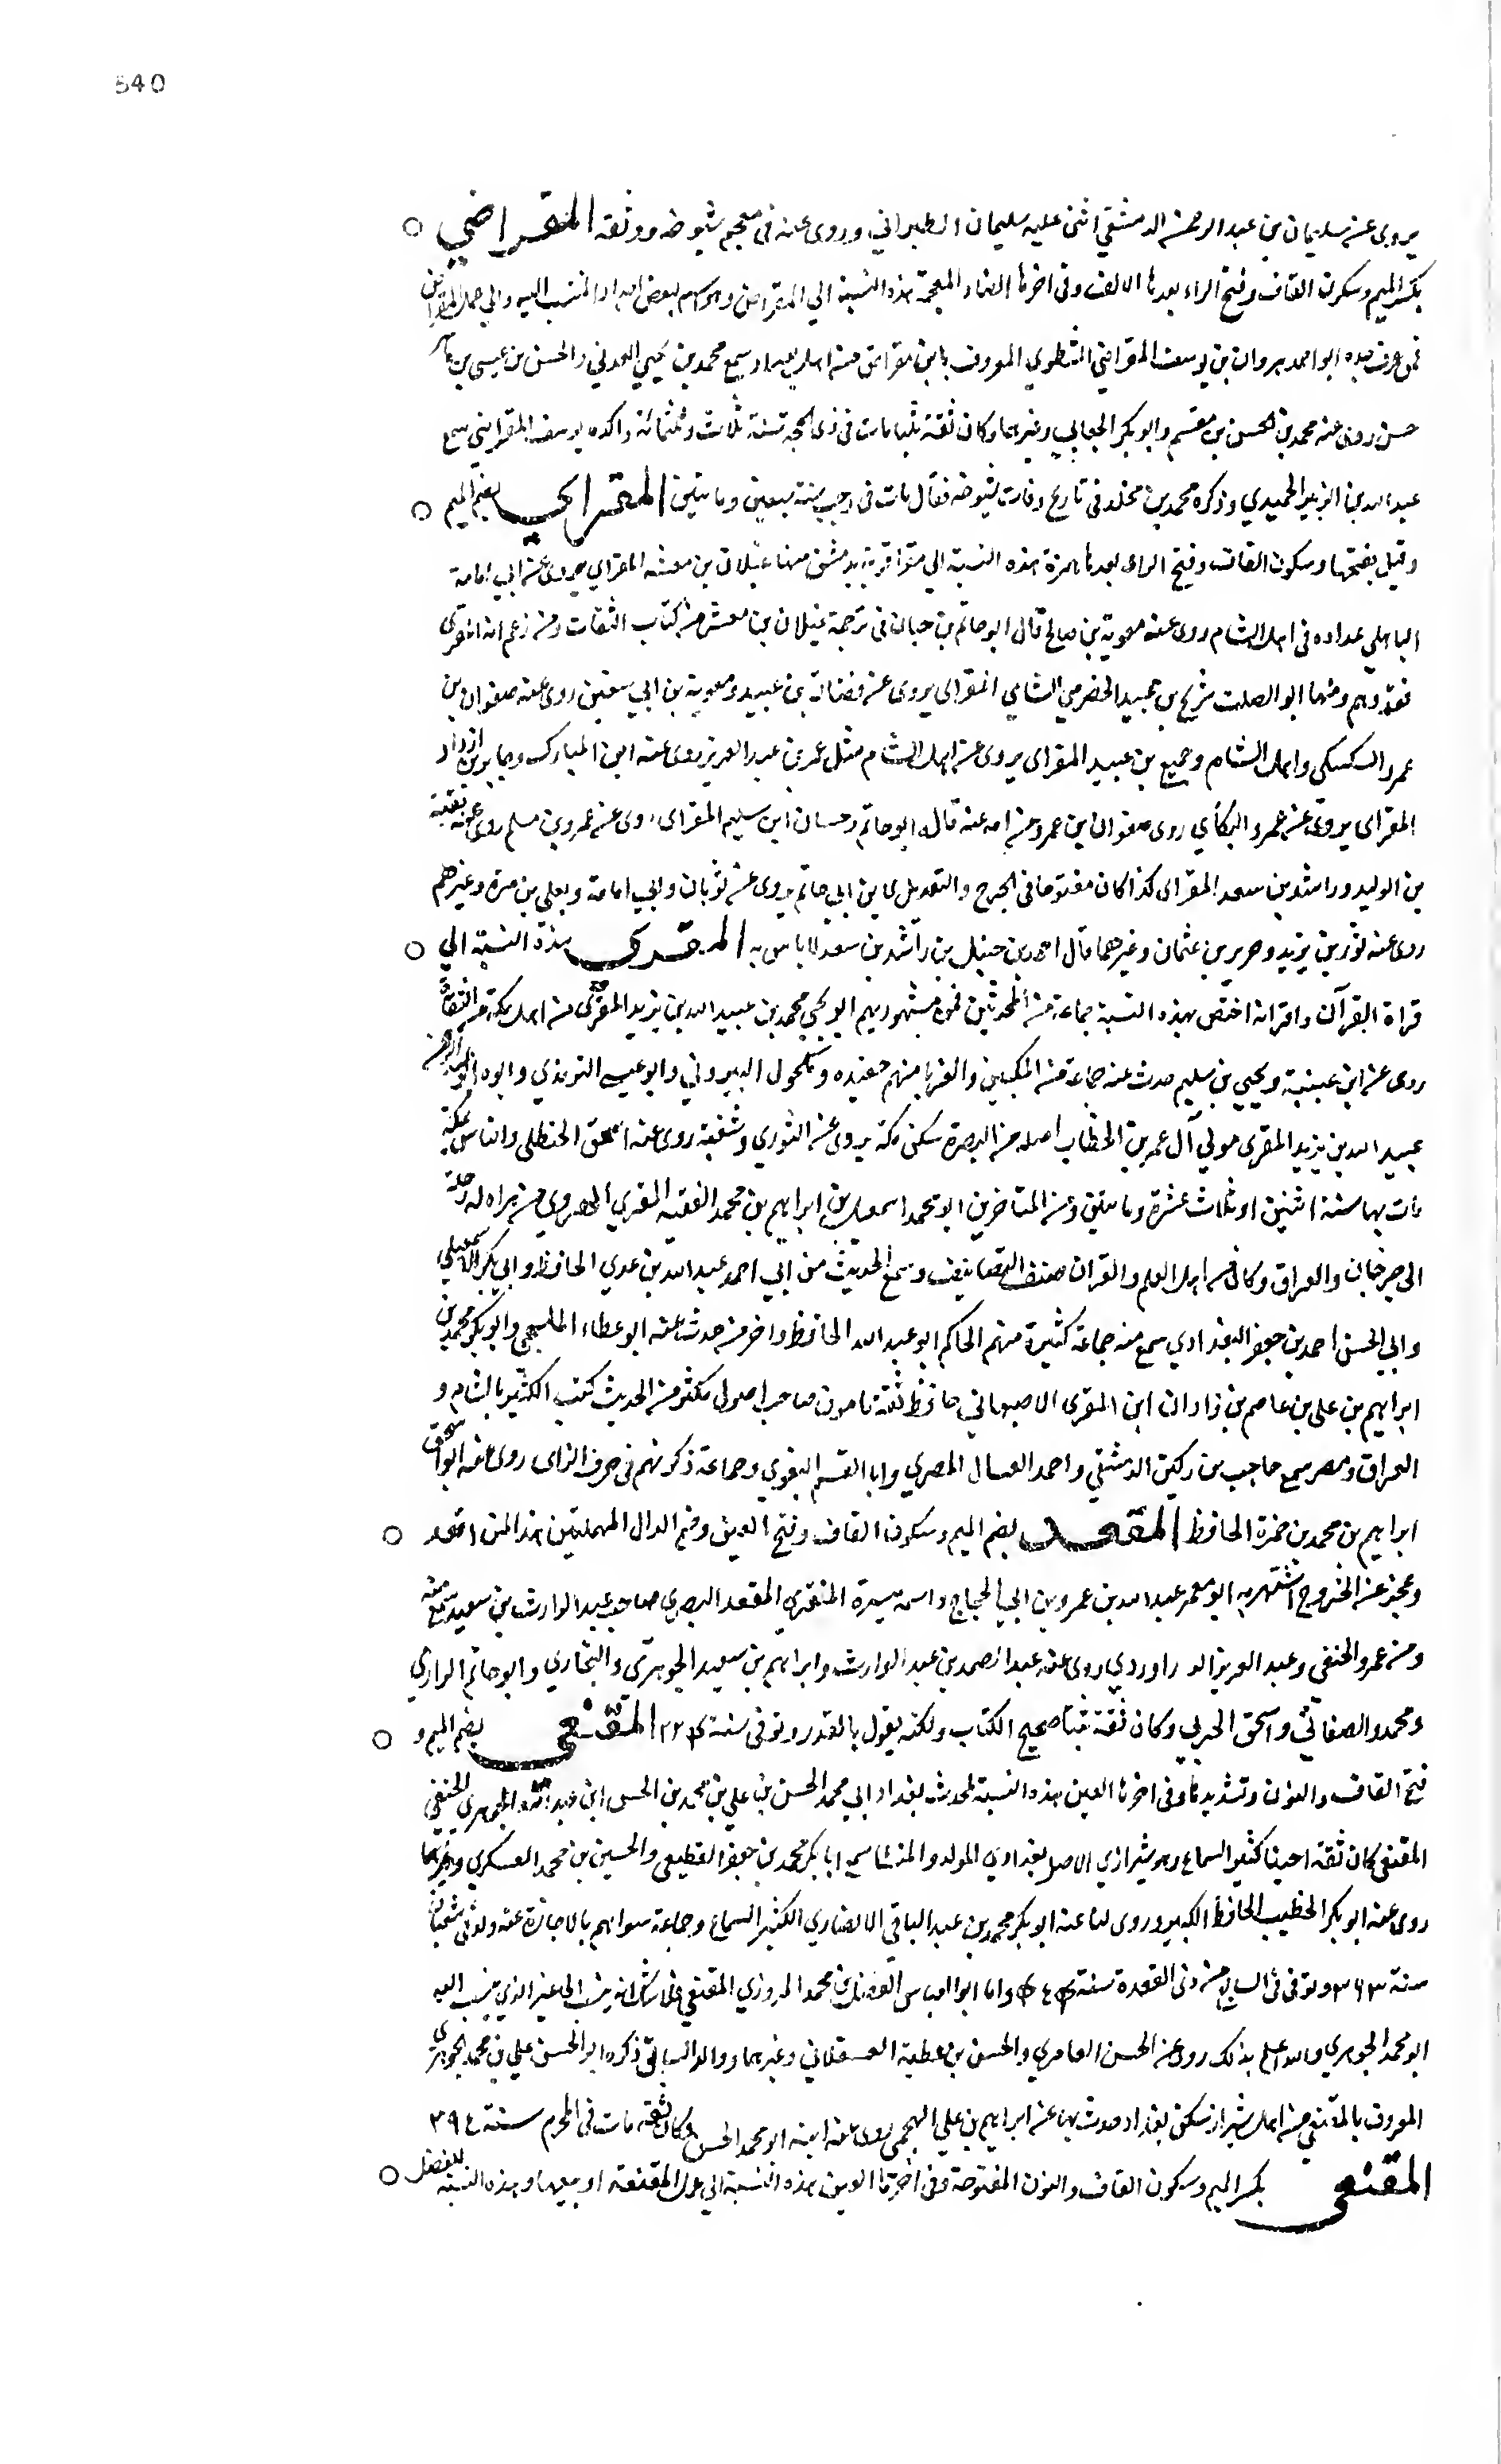 540
يروى عن سليمان بن عبد الرحمن الدمشقي اثنى عليه سليمان الطبراني وروى عنه فى معجم شيوخه ووثقه المقراضي
بكسر الميم وسكون القاف وفتح الراء بعدها الالف وفى اخرها الضاد المعجمة هذه النسبة الي المقراض وهو اسم لبعض اجداد المنتسب اليه والي عمل المقراض
فمن عرف بهذه ابو احمد هرون بن يوسف المقراضي الشطوي المعروف بابن مقراض من اهل بغداد سمع محمد بن يحيي العدني والحسن بن عيسى بن
روى عنه محمد بن الحسن بن مقسم وابو بكر الجعابي وغيرهما وكان ثقة ثبتا مات فى ذى الحجة سنة ثلاث وثلثمائة والده يوسف المقراضي سمع
عبد الله بن الزبير الحميدي وذكره محمد بن مخلد فى تاريخ وفات شيوخه فقال مات فى رجب سنة سبعين وماتين المقراي بضم الميم
وقيل بفتحها وسكون القاف وفتح الراى بعدها همزة هذه النسبة الي مقرا قرية بدمشق منها غيلان بن معشر المقراي يروى عن ابي امامة
الباهلي عداده فى اهل الشام روى عنه معوية بن صالح قال ابو حاتم بن حبان فى ترجمة غيلان بن معشر من كتاب الثقات ومن زعم انه المقرى
فقد وهم ومنها ابو الصلت شريح بن عبيد الحضرمي الشامي المقراى يروى عن فضالة بن عبيد ومعوية بن ابي سفين روى عنه صفوان بن
عمرو السكسكي واهل الشام وجميع بن عبيد المقراى يروى عن اهل الشام مثل عمر بن عبد العزيز روى عنه ابن المبارك وجابر بن ازداد
المقراى يروى عن عمرو البكاي روى صفوان بن عمرو عن امه عنه قاله ابو حاتم وحسان ابن سليم المقراى روى عن عمرو بن مسلم روى عنه بقية
بن الوليد وراشد بن سعد المقراى كذا كان مفتوحا فى الجرح والتعديل لابن ابي حاتم يروى عن ثوبان وابي امامة ويعلى بن مرة وغيرهم
روى عنه ثور بن يزيد وحريز بن عثمان وغيرهما قال احمد بن حنبل بن راشد بن سعد لا باس به المقرى هذه النسبة الي
قراة القرآن واقرائه اختص بهذه النسبة جماعة من المحدثين فمن مشهوريهم ابو يحيي محمد بن عبد الله بن يزيد المقرى من اهل مكة من الثقات
روى عن ابن عيينة ويحيي بن سليم حدث عنه جماعة من المكيين والغربا منهم حفيده ومكحول البيروتي وابو عيسى الترمذي وابوه ابو عبد الرحمن
عبد الله بن يزيد المقرى مولي آل عمر بن الخطاب اصله من البصرة سكن مكة يروى عن الثوري وشعبة روى عنه اسحق الحنظلي والناس بمكة
مات بها سنة اثنتين او ثلاث عشرة وماتين ومن المتاخرين ابو محمد اسمعيل بن ابراهيم بن محمد الفقيه المقري الهروي من هراه له رحلة
الى جرجان والعراق وكان من اهل العلم والقران صنف التصانيف وسمع الحديث من ابي احمد عبد الله بن عدي الحافظ وابي بكر الاسمعيلي
وابي الحسن احمد بن جعفر البغدادي سمع منه جماعة كثيرة منهم الحاكم ابو عبد الله الحافظ واخر من حدث عنه ابو عطاء المليحي وابو بكر محمد بن
ابراهيم بن علي بن عاصم بن زاذان ابن المقرى الاصبهاني حافظ ثقة مامون صاحب اصول مكثر من الحديث كتب الكثير بالشام و
العراق ومصر سمع حاجب بن ركين الدمشقي واحمد العسال المصري وابا القسم البغوي وجماعة ذكرتهم فى حرف الزاى روى عنه ابو اسحق
ابراهيم بن محمد بن حمزة الحافظ المقعد بضم الميم وسكون القاف وفتح العين وضم الدال المهملتين هذا لمن اقعد
وعجز عن الخروج اشتهر به ابو معمر عبد الله بن عمرو بن ابي الحجاج واسمه ميسرة المنقري المقعد البصري صاحب عبد الوارث بن سعيد سمع منه
ومن عمرو الحنفي وعبد العزيز الدراوردي روى عنه عبد الصمد بن عبد الوارث وابراهيم بن سعيد الجوهرى والبخاري وابو حاتم الرازي
ومحمد الصغاني واسحق الحربي وكان ثقة ثبتا صحيح الكتاب ولكنه يقول بالقدر وتوفى سنة ٢٢٤ المقنعي بضم الميم و
فتح القاف والنون وتشديدها وفى اخرها العين هذه النسبة لمحدث بغداد ابي محمد الحسن بن علي بن محمد بن الحسن ابن عبد الله الجوهري
المقنعي كان ثقة امينا كثير السماع وهو شيرازي الاصل بغدادي المولد والمنشا سمع ابا بكر محمد بن جعفر القطيعي والحسين بن محمد العسكري وغيرهما
روى عنه ابو بكر الخطيب الحافظ الكبير وروى لنا عنه ابو بكر محمد بن عبد الباقي الانصاري الكثير السماع وجماعة سواهم بالاجازة عنه ولد فى شعبان
سنة ٣٦٣ وتوفى فى السابع من ذى القعدة سنة ٤٥٤ واما ابو العباس الفضل بن محمد المروزي المقنعي ينسب الي غير الذي ينسب اليه
ابو محمد الجوهري والله اعلم بذلك روى عن الحسن العامري والحسن بن عطية العسقلاني وغيرهما ووالد السابق ذكره ابو الحسن علي بن محمد الجوهرى
المعروف بالمقنعي من اهل شيراز سكن بغداد وحدث بها عن ابراهيم بن علي الهجيمى روى عنه ابنه ابو محمد الحسن وكان ثقة مات فى المحرم سنة ٣٩٤
المقنعى بكسر الميم وسكون القاف والنون المفتوحة وفى اخرها العين هذه النسبة الي عمل المقنعة او بيعها وهذه النسبة للفضل